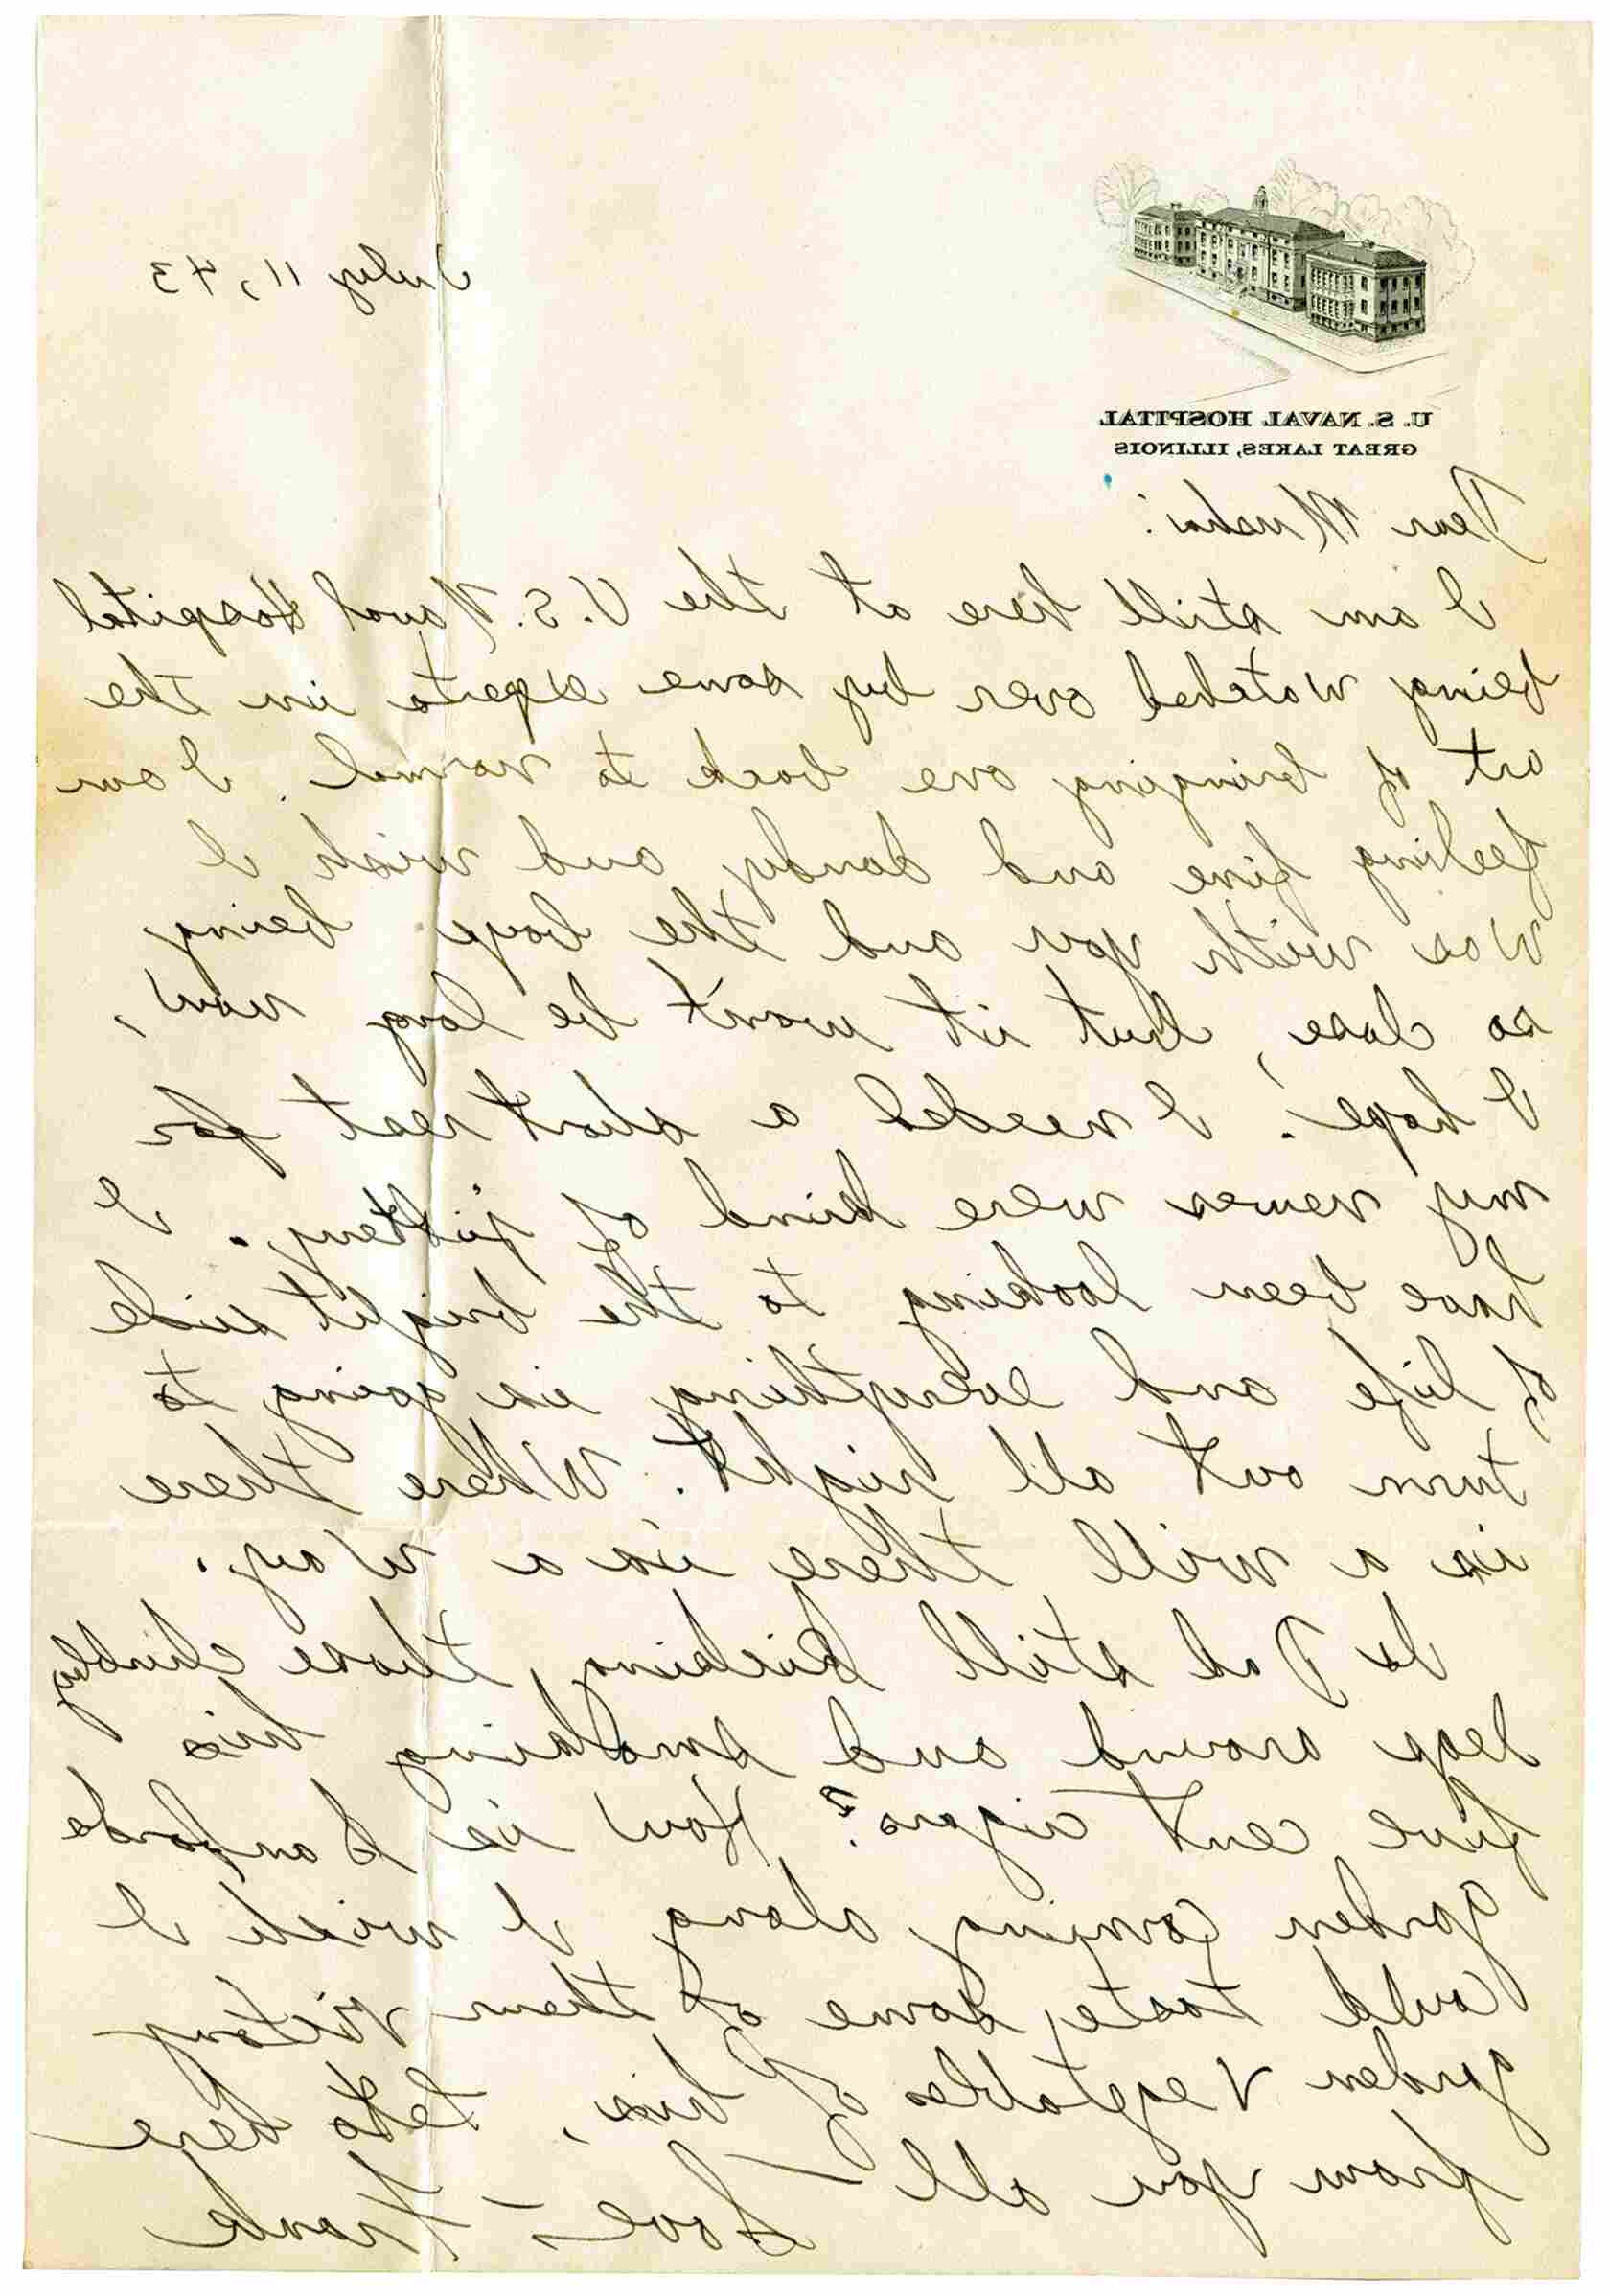 U. S. NAVAL HOSPITAL
GREAT LAKES, ILLINOIS
July 11, 43
Dear
I am still here at the U.S. Naval Hospital
being watched over by some experts in the
art of bringing one back to normal. I am
feeling fine and dandy and wish I
was with you and the boys being
so close, but it won't be long now,
I hope. I needed a short rest for
my nerves were kind of jittery. I
have been looking to the bright side
of life and everything is going to
turn out all right. Where there
is a will there is a way.
Is Dad still kicking those chubby
legs around and smoking his
five cent cigars? How is
garden coming along I wish I
could taste some of them victory
garden vegtables of his, lets here
from you all —
Love — Frank